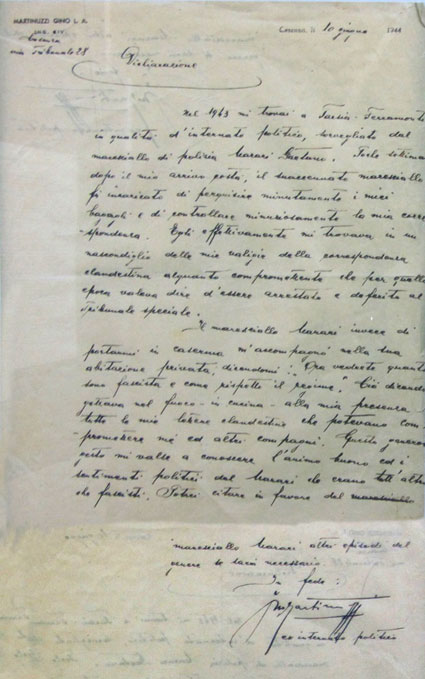 MARTINUZZI GINO L. A.
ING. CIV.
Cosenza
via Tribunale 28
Cosenza, li 10 giugno 1944
Dichiarazione
Nel 1943 mi trovai a Tarsia-Ferramonte
in qualità d'internato politico, sorvegliato dal
maresciallo di polizia Marari Gaetano. Poche settimane
dopo il mio arrivo costà, il suaccennato maresciallo
fu incaricato di perquisire minutamente i miei
bagagli e di controllare minuziosamente la mia corri
spondenza. Egli effettivamente mi trovava in un
nascondiglio delle mie valigie della corrispondenza
clandestina alquanto compromettente che per quella
epoca valeva dire d'essere arrestato e deferito al
Tribunale speciale.
Il maresciallo Marari invece di
portarmi in caserma m'accompagnò nella sua
abitazione privata, dicendomi: "Ora vedrete quanto
sono fascista e come rispetto il regime". Ciò dicendo
gettava nel fuoco - in cucina - alla mia presenza
tutte le mie lettere clandestine che potevano com
-promettere me ed altri compagni. Questo generoso
gesto mi valse a conoscere l'animo buono ed i
sentimenti politici del Marari che erano tutt'altro
che fascisti. Potrei citare in favore del maresciallo
maresciallo Marari altri episodi del
genere se sarà necessario.
In fede:
Martinuzzi
ex internato politico